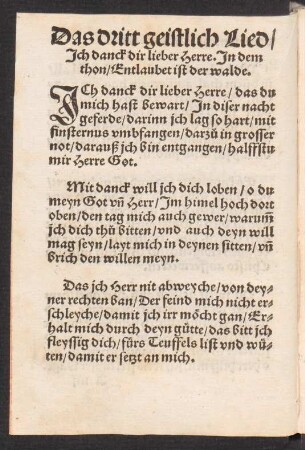 Das dritt geistlich Lied/
Jch danck dir lieber Herre. Jn dem
thon/Entlaubet ist der walde.
JCh danck dir lieber Herre/das du
mich hast bewart/Jn diser nacht
geferde/darinn jch lag so hart/mit
finsternus vmbfangen/darzů in grosser
not/darauß jch bin entgangen/halffstu
mir Herre Got.
Mit danck will jch dich loben/o du
meyn Got vn̄ Herr/Jm himel hoch dort
oben/den tag mich auch gewer/warumb
jch dich thů bitten/vnd auch deyn will
mag seyn/layt mich in deynen sitten/vn̄
brich den willen meyn.
Das jch Herr nit abweyche/von dey-
ner rechten ban/Der feind mich nicht er-
schleyche/damit jch irr möcht gan/Er-
halt mich durch deyn gütte/das bitt jch
fleyssig dich/fürs Teuffels list vnd wü-
ten/damit er setzt an mich.